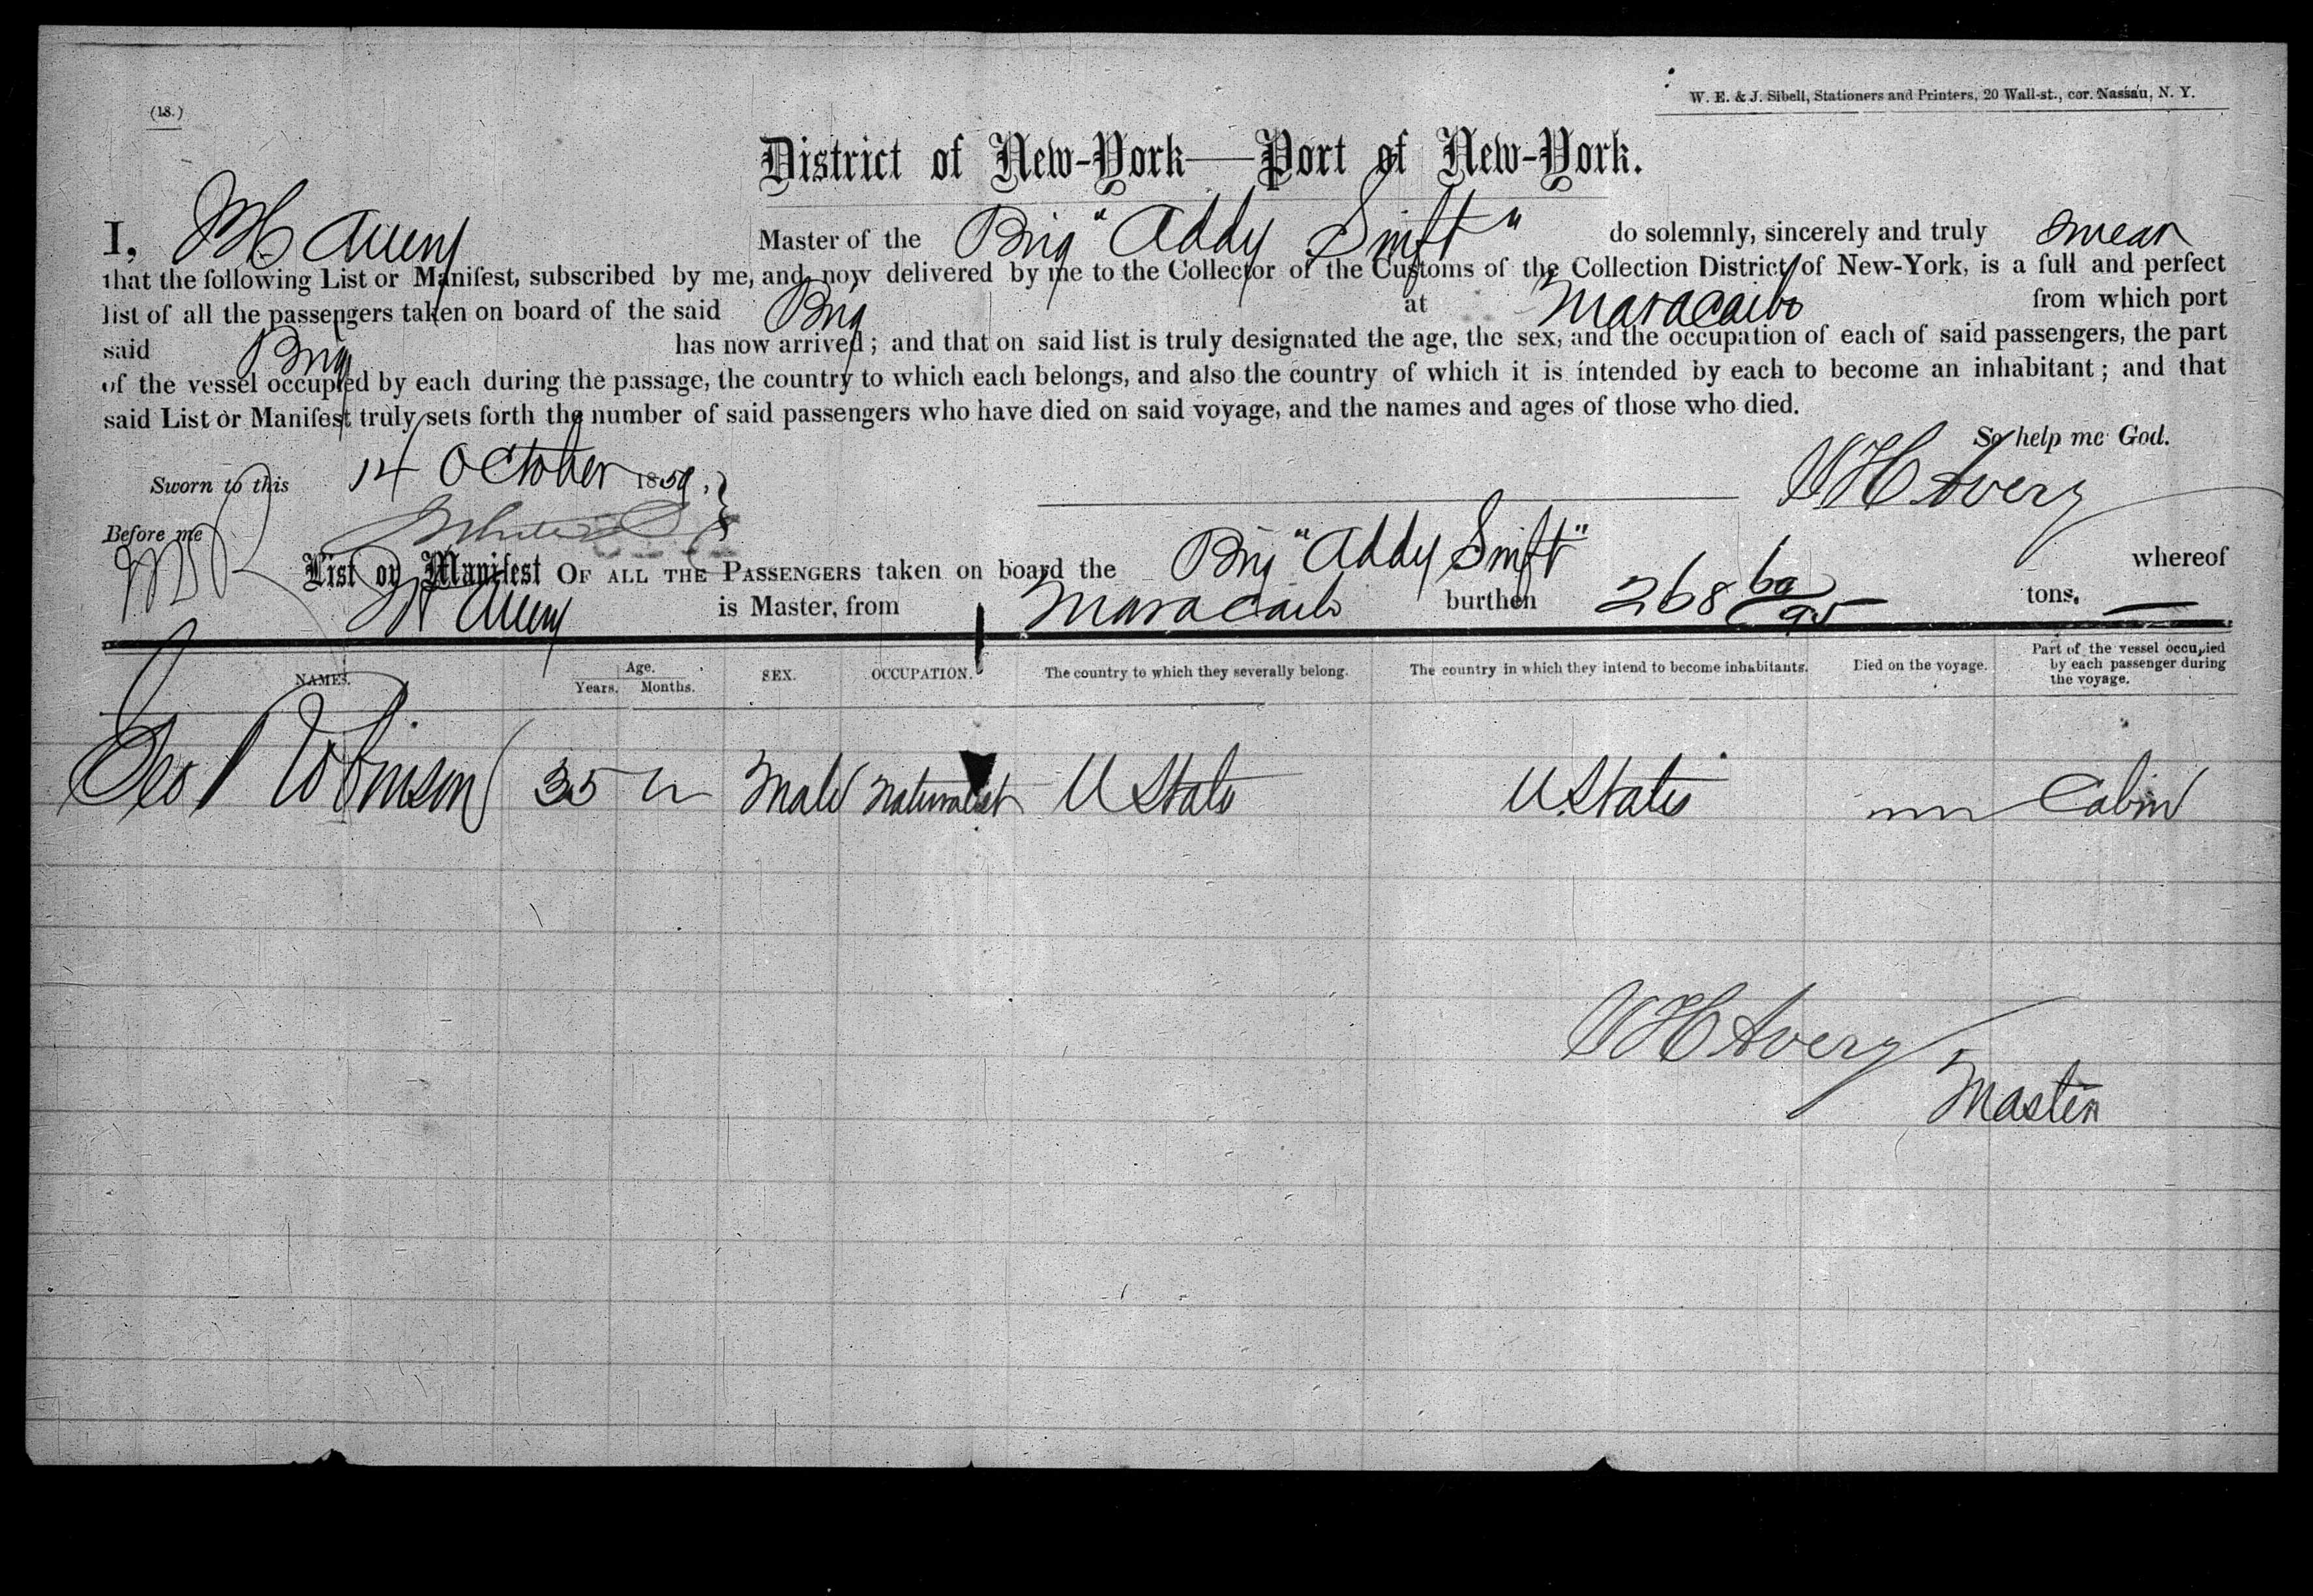 (18.)
W. E. & J. Sibell, Stationers and Printers, 20 Wall-st., cor. Nassau, N. Y.
District of New-York—Port of New-York.
I, Master of the Brig "Addy Swift" do solemnly, sincerely and truly swear
that the following List or Manifest, subscribed by me, and now delivered by me to the Collector of the Customs of the Collection District of New-York, is a full and perfect
list of all the passengers taken on board of the said Brig at Maracaibo from which port
said Brig has now arrived; and that on said list is truly designated the age, the sex, and the occupation of each of said passengers, the part
of the vessel occupied by each during the passage, the country to which each belongs, and also the country of which it is intended by each to become an inhabitant; and that
said List or Manifest truly sets forth the number of said passengers who have died on said voyage, and the names and ages of those who died.
So help me God.
Sworn to this 14 October 1859,
W H Avery
Before me
List or Manifest OF ALL THE PASSENGERS taken on board the Brig "Addy Swift" whereof
W H Avery is Master, from Maracaibo burthen 268 69/95 tons.
NAMES. Age. Years. Months. SEX. OCCUPATION. The country to which they severally belong. The country in which they intend to become inhabitants. Died on the voyage. Part of the vessel occupied by each passenger during the voyage.
Geo Robinson 35 Male Naturalist U States U. States Cabin
W H Avery
Master